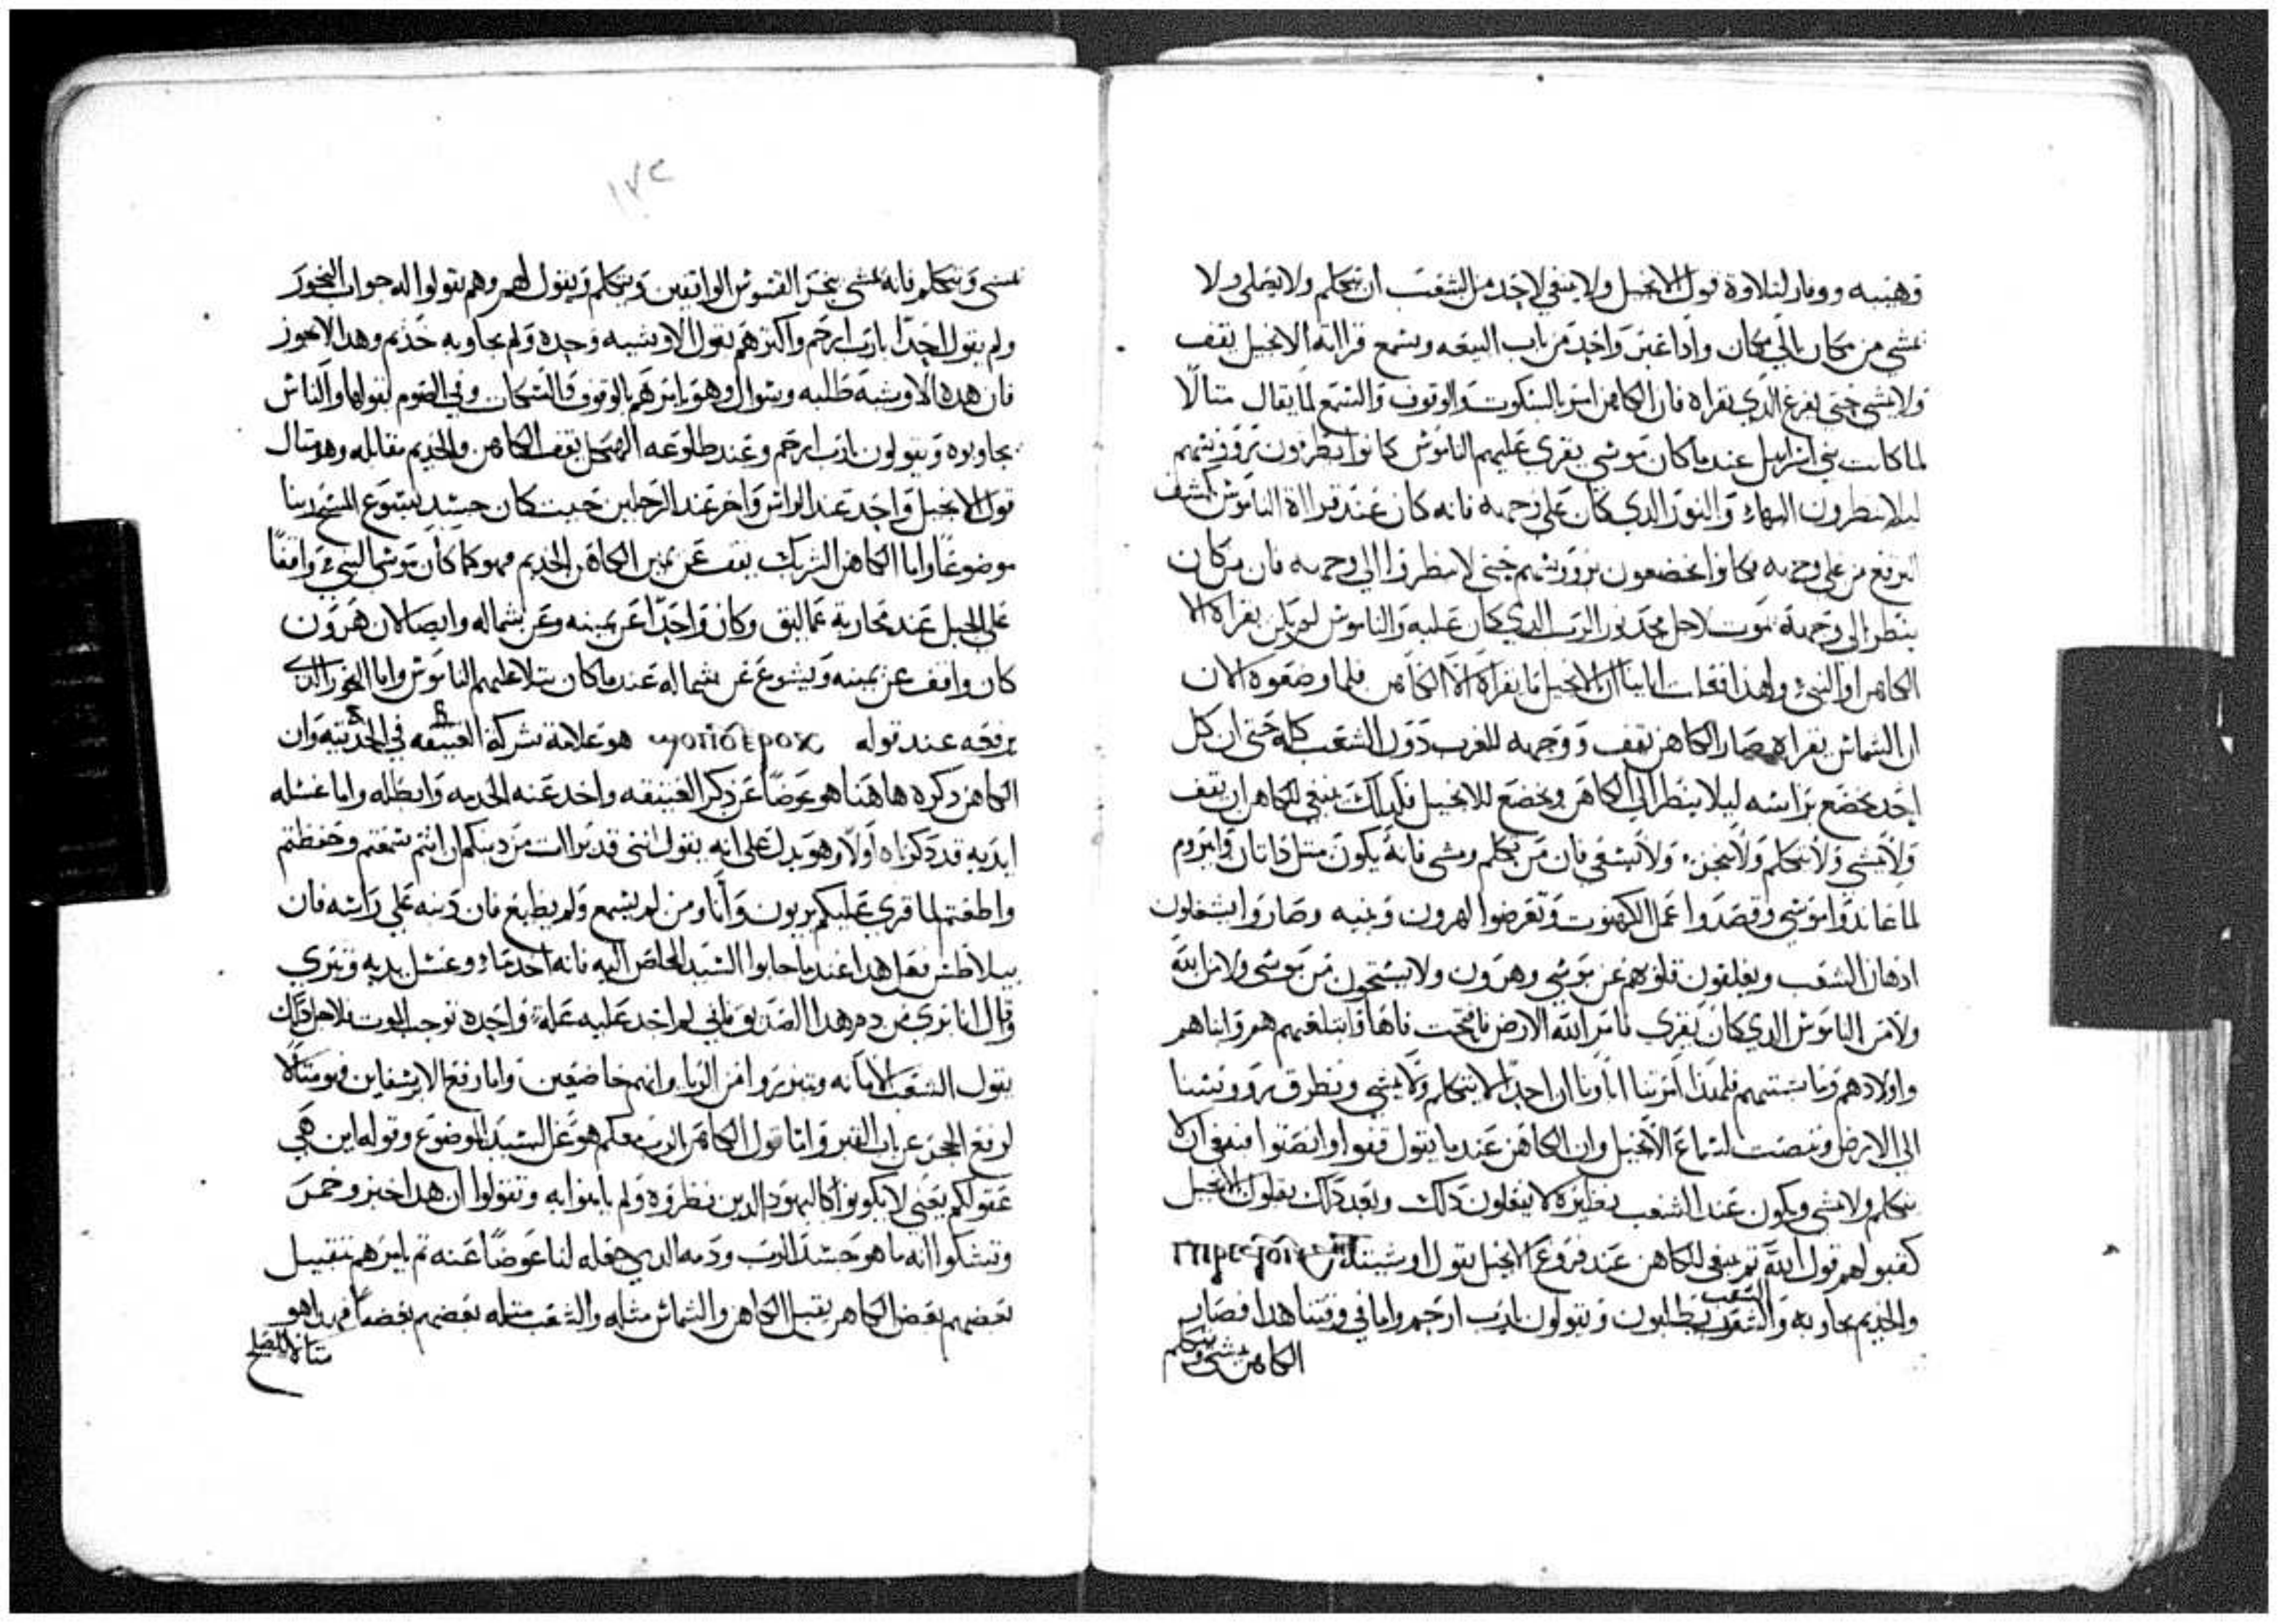 وهيبه ووقار لتلاوة قول الانجيل ولا ينبغي لاحد من الشعب ان يتكلم ولا يصلي ولا
يمشي من مكان الي مكان واذا عبر واحد من باب البيعه وسمع قراة الانجيل يقف
ولا يمشي حتي يفرغ الذي يقراه فان الكاهن امر بالسكوت والوقوف والسمع لما يقال مثالا
لما كانت بني اسراييل عندما كان موسي يقري عليهم الناموس كانوا يطرقون بروؤسهم
ليلا ينظرون البهاء والنور الذي كان علي وجهه فانه كان عند قراة الناموس يكشف
البرقع من علي وجهه فكانوا يخضعون بروؤسهم حتي لا ينظروا الي وجهه فان من كان
ينظر الي وجهه يموت لاجل مجد نور الرب الذي كان عليه والناموس لم يكن يقراه الا
الكاهن او النبي ولهذا اباينا ان الانجيل ما يقراه الا الكاهن فلما وضعوه الان
ان الشماس يقراه صار الكاهن يقف ووجهه للغرب دون الشعب كله حتي ان كل
احد يخضع براسه ليلا ينظر الي الكاهن ويخضع للانجيل فكذلك ينبغي للكاهن ان يقف
ولا يمشي ولا يتكلم ولا يبخر ولا يسعي فان من تكلم ومشي فانه يكون مثل داتان وابيروم
لما عاندوا موسي وقصدوا عمل الكهنوت وتعرضوا لهرون وبنيه وصاروا يشغلون
ادهان الشعب ويقلقون قلوبهم عن موسي وهرون ولا يستحون من موسي ولا من الله
ولا من الناموس الذي كان يقري فامر الله الارض فافتحت فاها وابتلعتهم هم وابناهم
واولادهم وماشيتهم فلهذا امرتنا اباونا ان احدا لا يتكلم ولا يمشي ونطرق بروؤسنا
الي الارض وننصت لسماع الانجيل وان الكاهن عندما يقول قفوا وانصتوا فينبغي ان لا
يتكلم ولا يمشي ويكون عند الشعب نظيره لا يفعلون ذلك وبعد ذلك يقبلون الانجيل
كقبولهم قول الله ثم ينبغي للكاهن عند فروغ الانجيل يقول اوشية
والخديم يجاوبه والشعب يطلبون ويقولون يارب ارحم واما في وقتنا هذا فصار
الكاهن يمشي ويتكلم
١٧٢
يمشي ويتكلم فانه يمشي يبخر القسوس الواقفين ويتكلم ويقول لهم وهم يقولوا له جواب البخور
ولم يقول احدا يارب ارحم واكثرهم يقول الاوشيه وحده ولم يجاوبه خديم وهذا لا يجوز
فان هذه الاوشيه طلبه وسوال وهو يامرهم بالوقوف وفي الصوم يقولها والناس
يجاوبوه ويقولون يارب ارحم وعند طلوعه الهيكل يقف الكاهن والخديم مقابله وهو مثال
قول الانجيل واحد عند الراس واخر عند الرجلين حيث كان جسد يسوع المسيح ربنا
موضوعا واما الكاهن الشريك يقف عن يمين الكاهن الخديم فهو كما كان موسي النبي واقفا
علي الجبل عند محاربة عماليق وكان واحدا عن يمينه وعن شماله وايضا لان هرون
كان واقف عن يمينه ويشوع عن شماله عندما كان يتلا عليهم الناموس واما البخور الذي
يرفعه عند قوله هو علامة شركة العتيقه في الحديثه وان
الكاهن ذكره هاهنا هو عوضا عن ذكر العتيقه واخذ عنه الخدمه وابطله واما غسله
ايديه قد ذكرناه اولا وهو يدل علي انه يقول انني قد برات من دينكم ان انتم سمعتم وحفظتم
واطعتم لما قري عليكم بريون وانا ومن لم يسمع ولم يطيع فان دينه علي راسه فان
بيلاطس فعل هذا عندما جابوا السيد المخلص اليه فانه اخذ ماء وغسل يديه وتبري
وقال انا بري من دم هذا الصديق فانني لم اجد عليه علة واحده توجب الموت فلاجل ذلك
يقول الشعب الامانه ويتبرروا من الريا وانهم خاضعين واما رفع الابرسفارين فهو مثالا
لرفع الحجر عن باب القبر واما قول الكاهن الرب معكم هو عن السيد الموضوع وقوله اين هي
عقولكم يعني لا يكونوا كاليهود الذين نظروه ولم يامنوا به وتقولوا ان هذا خبز وخمر
وتشكوا انه ما هو جسد الرب ودمه الذي جعله لنا عوضا عنه ثم يامرهم بتقبيل
بعضهم بعض الكاهن يقبل الكاهن والشماس مثله والشعب مثله بعضهم بعضا فهذا هو
مثالا للصلح